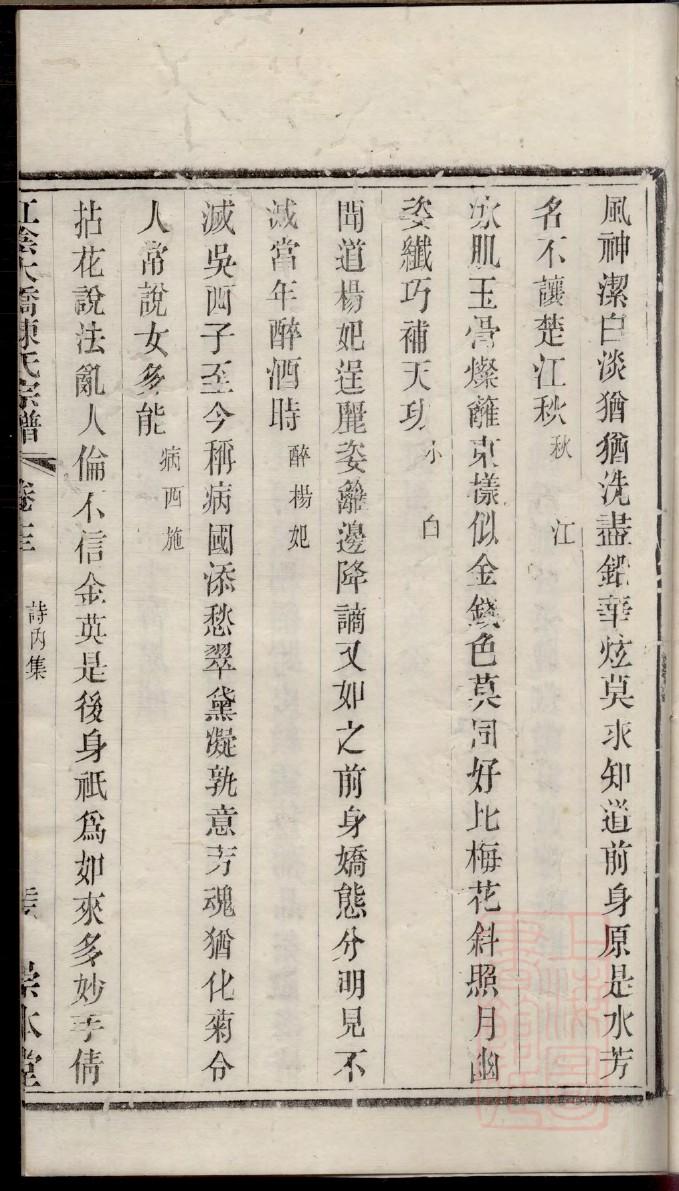 風神潔白淡猶猶洗盡鉛華炫莫求知道前身原是水芳
名不讓楚江秋 秋江
冰肌玉骨燦蘺東樣似金錢色莫同好比梅花斜照月幽
姿纖巧補天功 小白
聞道楊妃逞麗姿離邊降謫又如之前身嬌態分明見不
減當年醉酒時 醉楊妃
滅吳西子至今稱病國添愁翠黛凝孰意芳魂猶化菊令
人常說女多能 病西施
拈花說法亂人倫不信金英是後身祇為如來多妙手倩
江陰大橋陳氏宗譜 卷 詩內集 崇本堂